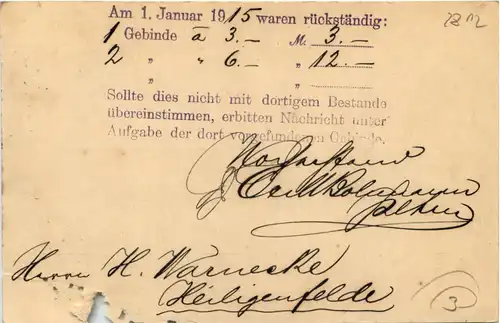 Am 1. Januar 1915 waren rückständig:
1 Gebinde à 3.- M. 3.-
2 " " 6.- " 12.-
" " "
Sollte dies nicht mit dortigem Bestande
übereinstimmen, erbitten Nachricht unter
Aufgabe der dort vorgefundenen Gebinde.
Herrn H. Warnecke
Heiligenfelde
3